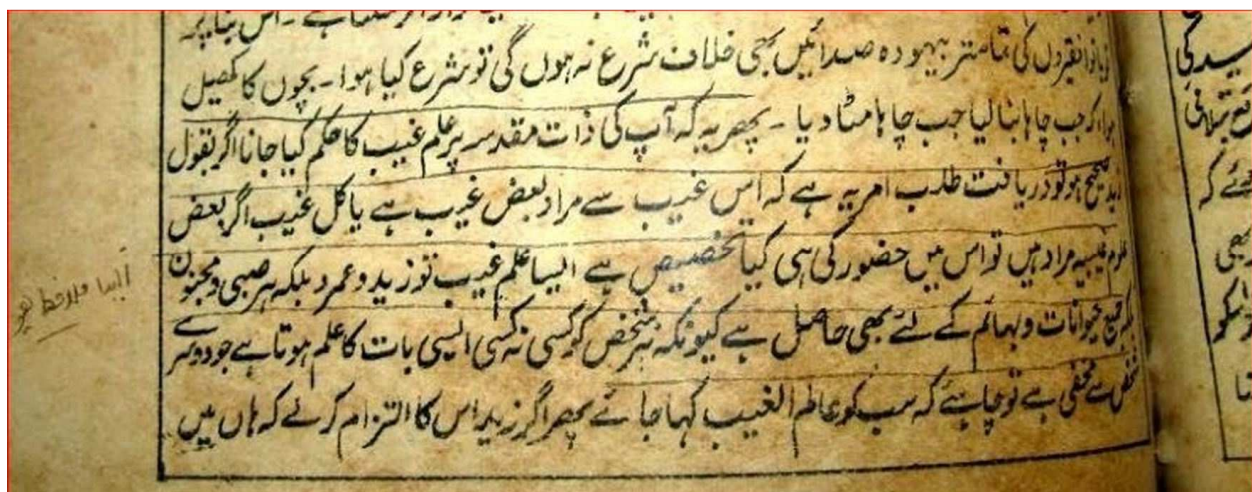 اس بنا پر
تو بانوا فقیروں کی تمامتر بیہودہ صدائیں بھی خلاف شرع نہ ہوں گی تو شرع کیا ہوا۔ بچوں کا کھیل
ہوا، کہ جب چاہا بنا لیا جب چاہا مٹا دیا۔ پھر یہ کہ آپ کی ذات مقدسہ پر علم غیب کا حکم کیا جانا اگر بقول
زید صحیح ہو تو دریافت طلب امر یہ ہے کہ اس غیب سے مراد بعض غیب ہے یا کل غیب اگر بعض
علوم غیبیہ مراد ہیں تو اس میں حضور کی ہی کیا تخصیص ہے ایسا علم غیب تو زید و عمرو بلکہ ہر صبی و مجنون
بلکہ جمیع حیوانات و بہائم کے لئے بھی حاصل ہے کیونکہ ہر شخص کو کسی نہ کسی ایسی بات کا علم ہوتا ہے جو دوسرے
شخص سے مخفی ہے تو چاہئے کہ سب کو عالم الغیب کہا جائے پھر اگر زید اس کا التزام کرلے کہ ہاں میں
ایسا ملاحظہ ہو